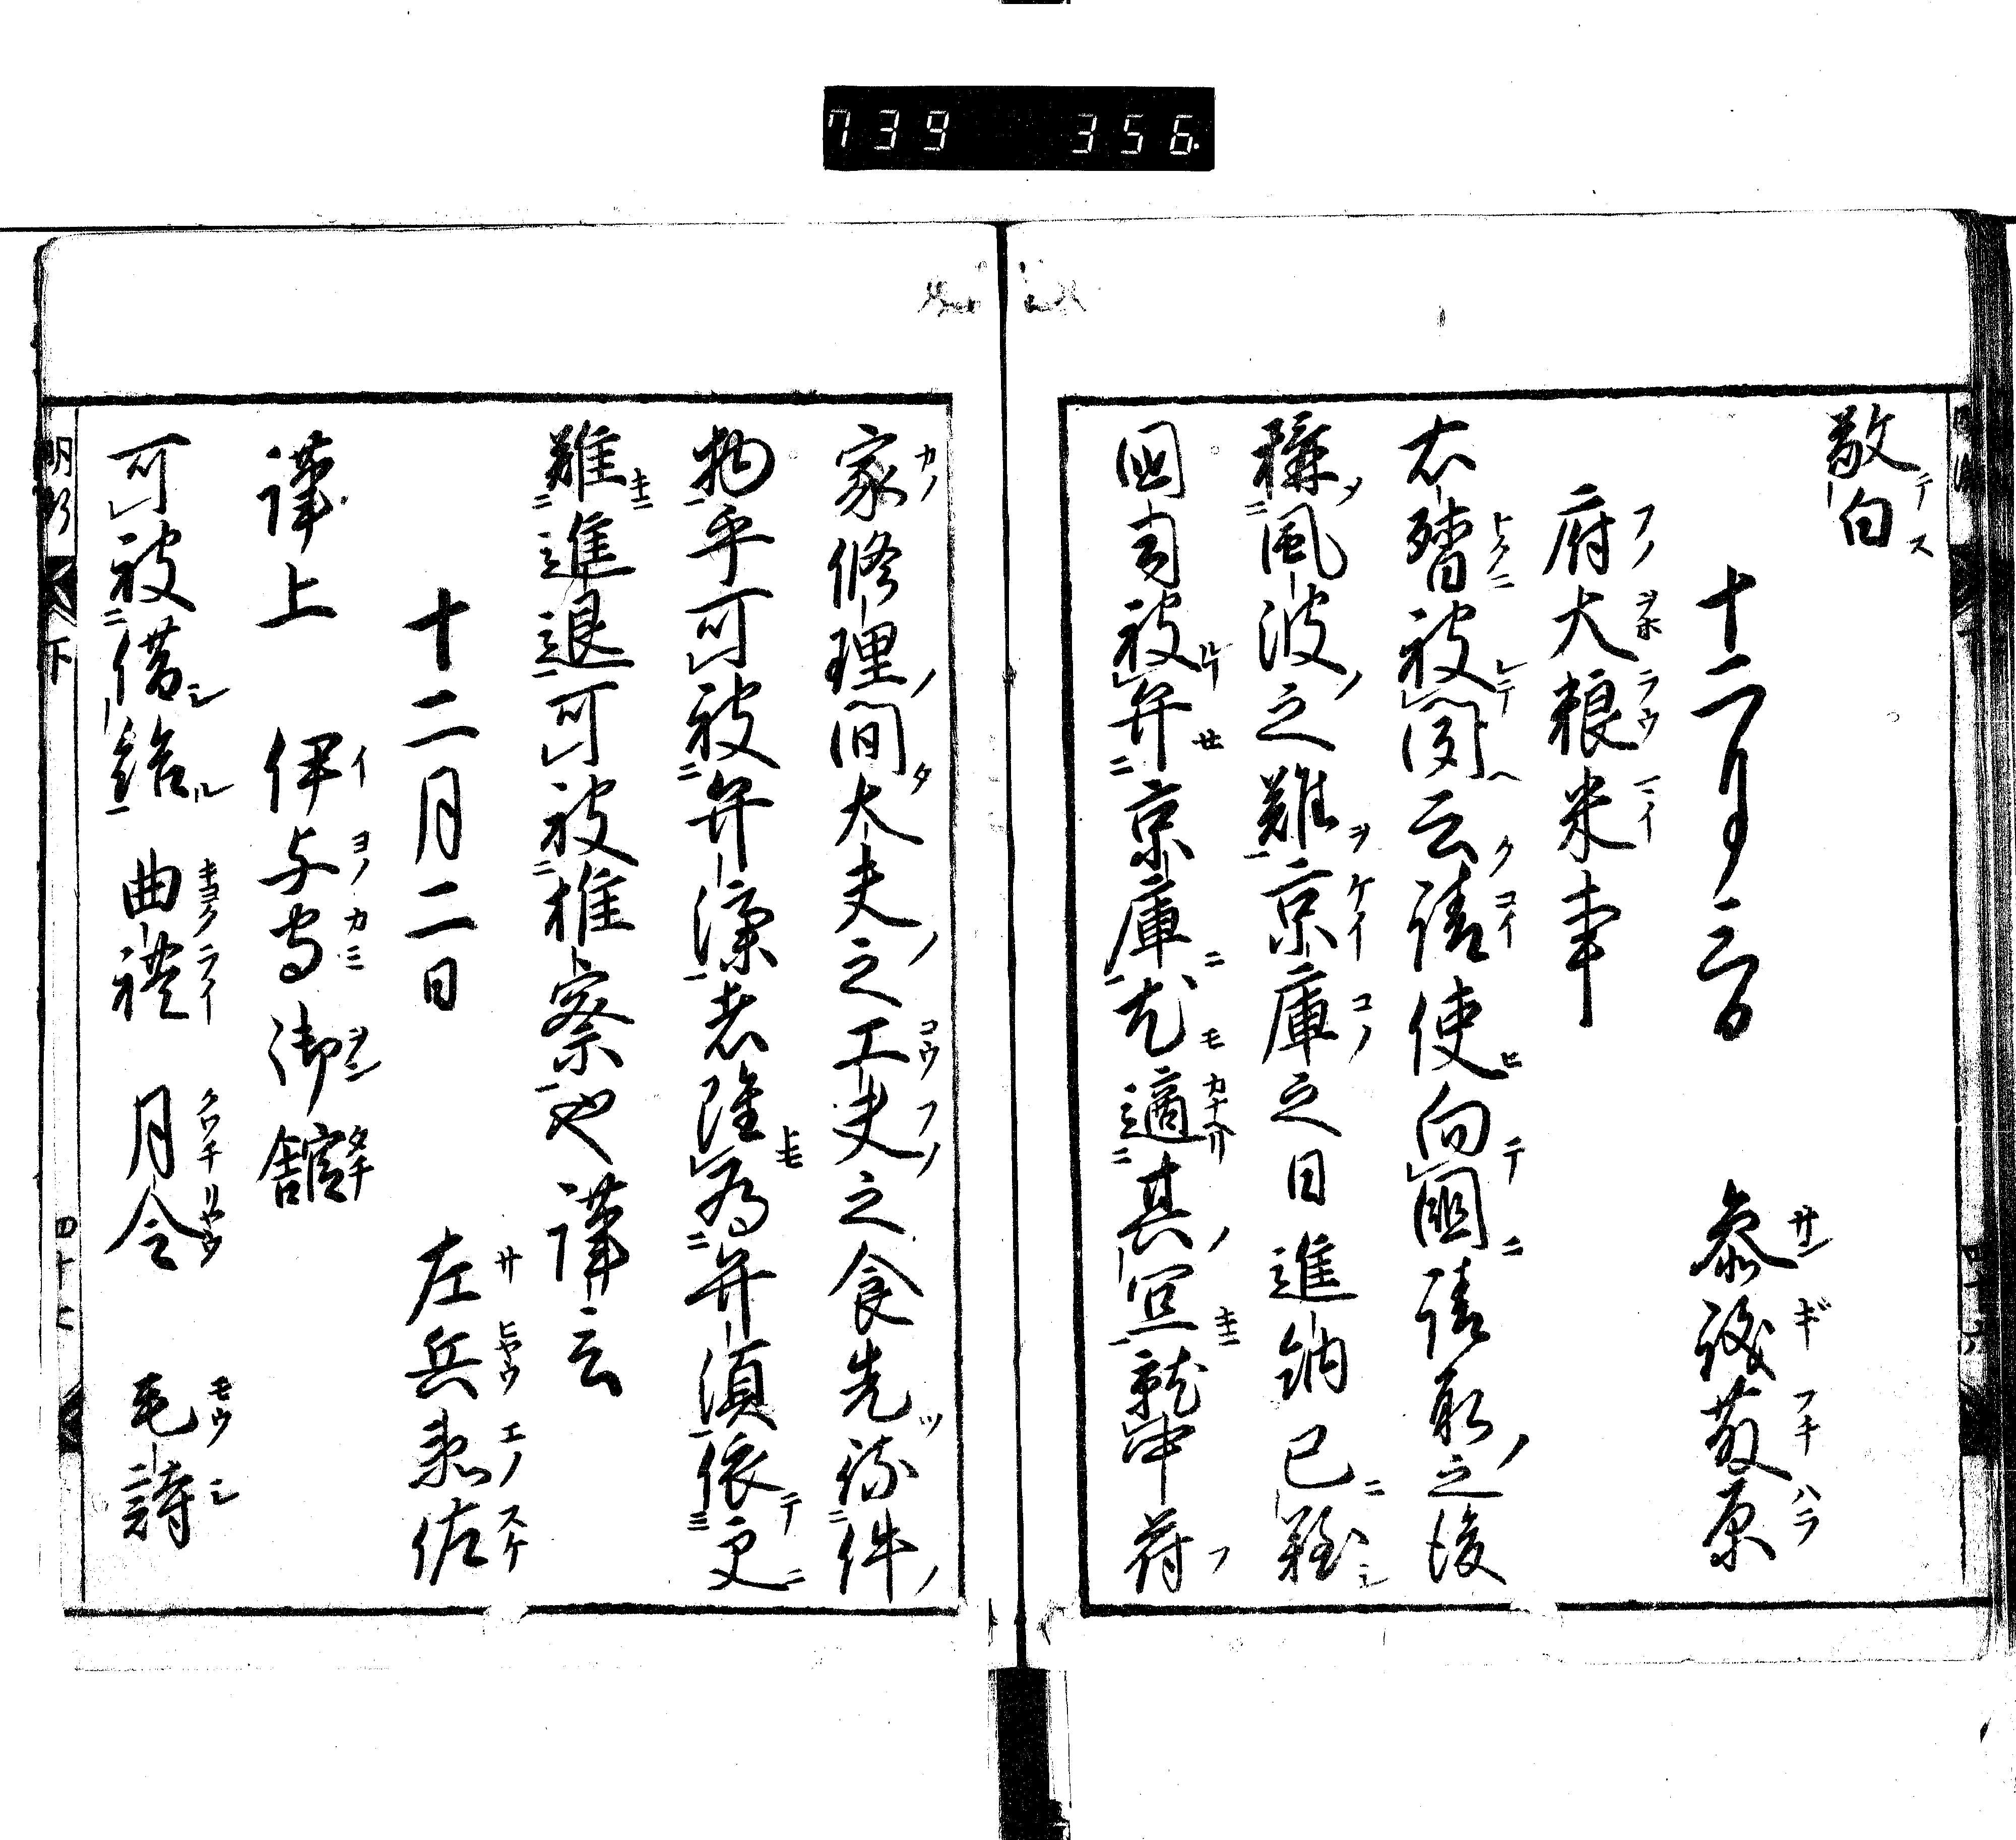 739 356
敬白
十二月二日 参議藤原
府大粮米事
右犢被聞云請使向國請取之後
稱風波之難京庫之日進納已難
國司被弁京庫尤適其宜就中荷
家修理間大夫之工夫之食先給件
物乎可被弁濟者随為弁須依更
難進退可被推察也謹言
十二月二日 左兵衛佐
謹上 伊与守御館
可被借給 曲禮 月令 毛詩
明衡 下 四十七